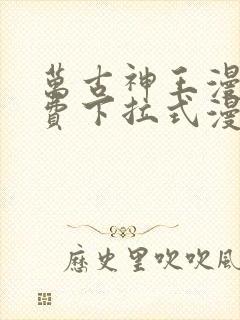 萬古神王漫
費下拉式漫
歷史里吹吹風